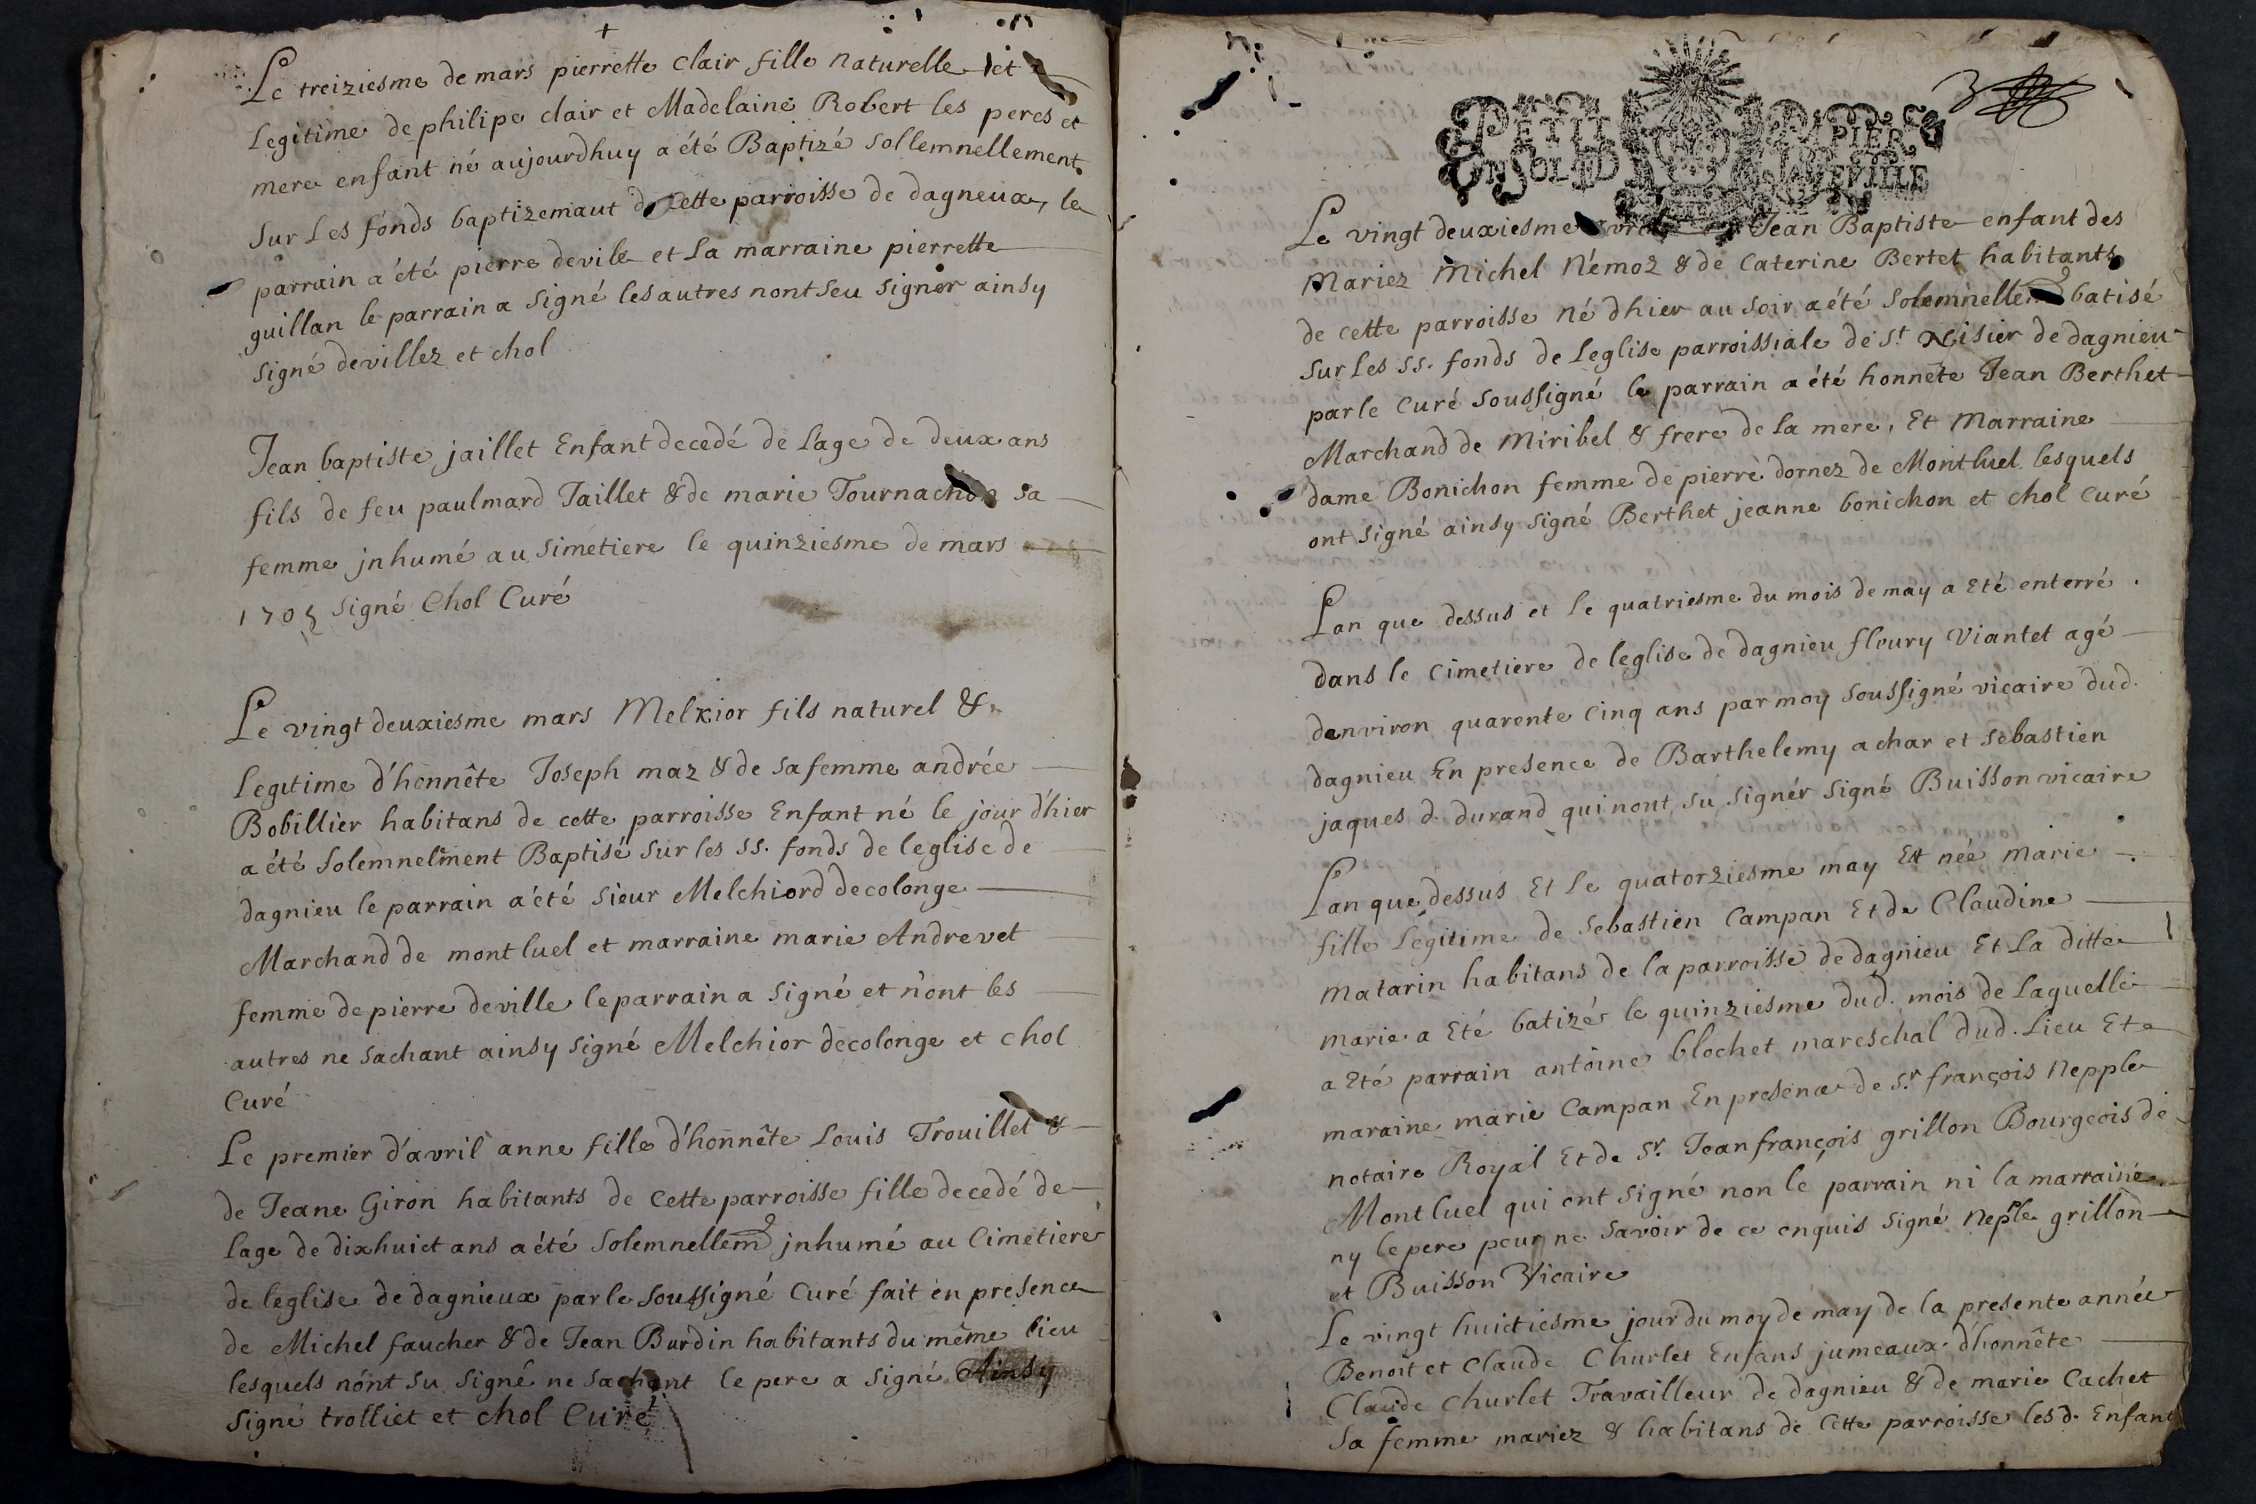 Le treiziesme de mars pierrette clair fille naturelle et
Legitime de philipe clair et Madelaine Robert les peres et
mere enfant né aujourdhuy a été Baptizé sollemnellement
sur les fonds baptizemaut de cette parroisse de dagneux, le
parrain a été pierre devile et la marraine pierrette
guillan le parrain a signé les autres nont seu signer ainsy
signé devillez et chol
Jean baptiste jaillet Enfant decedé de lage de deux ans
fils de feu paulmard Jaillet & de marie Tournachon sa
femme jnhumé au simétiere le quinziesme de mars
1705 signé Chol Curé
Le vingt deuxiesme mars Melkior fils naturel &
Legitime d'honnête Joseph maz & de sa femme andrée
Bobillier habitans de cette parroisse Enfant né le jour d'hier
a été solemnelment Baptisé sur les ss. fonds de leglise de
dagnieu le parrain a été sieur Melchiord decolonge
Marchand de montluel et marraine marie Andrevet
femme de pierre deville le parrain a signé et n'ont les
autres ne sachant ainsy signé Melchior decolonge et chol
Curé
Le premier d'avril anne fille d'honnête Louis Trouillet &
de Jeane Giron habitants de cette parroisse fille decedé de
lage de dixhuict ans a été solemnellem jnhumé au Cimetiere
de leglise de dagnieux par le soussigné Curé fait en presence
de Michel faucher & de Jean Burdin habitants du même lieu
lesquels nont su signé ne sachant le pere a signé Ainsy
signé trolliet et chol Curé
PETIT PAPIER
UN SOL LA FEUILLE
Le vingt deuxiesme Jean Baptiste enfant des
Mariez Michel Némoz & de Caterine Bertet habitants
de cette parroisse né dhier au soir a été solemnellem batisé
sur les ss. fonds de leglise parroissiale de st Nisier de dagnieu
par le Curé soussigné le parrain a été honnete Jean Berthet
Marchand de Miribel & frere de la mere, Et Marraine
dame Bonichon femme de pierre dornez de Montluel lesquels
ont signé ainsy signé Berthet jeanne bonichon et chol curé
Lan que dessus et le quatriesme du mois de may a Eté enterré
dans le cimetiere de leglise de dagnieu fleury Viantet agé
denviron quarente cinq ans par moy soussigné vicaire dud.
dagnieu En presence de Barthelemy achar et sebastien
jaques d. durand qui nont su signér signé Buisson vicaire
Lan que dessus Et le quatorziesme may Est née Marie
fille Legitime de Sebastien Campan Et de Claudine
Matarin habitans de la parroisse de dagnieu Et La ditte
Marie a Eté batizé le quinziesme dud. mois de Laquelle
a Eté parrain antoine blochet mareschal dud. Lieu Et
maraine marie Campan En presence de Sr. françois Nepple
notaire Royal Et de Sr. Jean françois grillon Bourgeois de
Montluel qui ont signé non le parrain ni la marraine
ny le pere pour ne savoir de ce enquis signé Nepple grillon
et Buisson Vicaire
Le vingt huictiesme jour du moy de may de la presente année
Benoit et Claude Churlet Enfans jumeaux d'honnête
Claude Churlet Travailleur de dagnieu & de marie Cachet
Sa femme mariez & habitans de Cette parroisse les d. Enfant